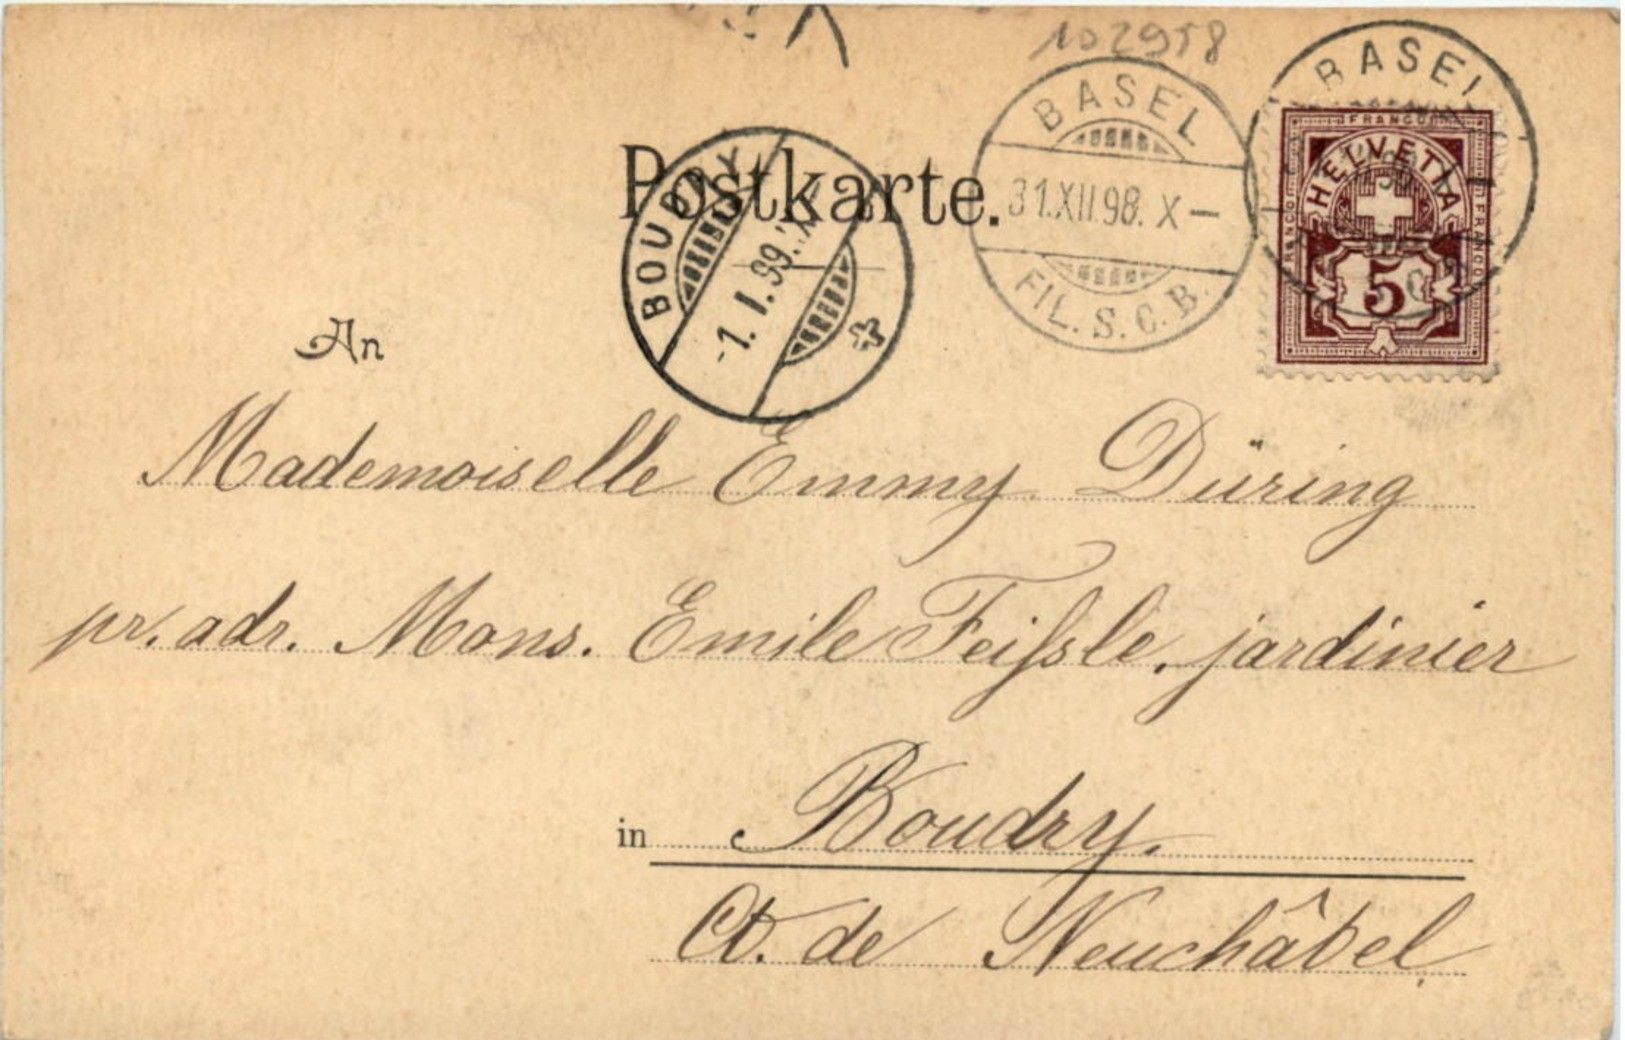 102958
BASEL
31.XII.98. X–
FIL. S. C. B.
BASEL
FRANCO
FRANCO
FRANCO
HELVETIA
5
Postkarte.
BOUDRY
-1. I. 99. X
An
Mademoiselle Emmy Düring
pr. adr. Mons. Emile Feifsle, jardinier
in Boudry.
Ct. de Neuchâtel